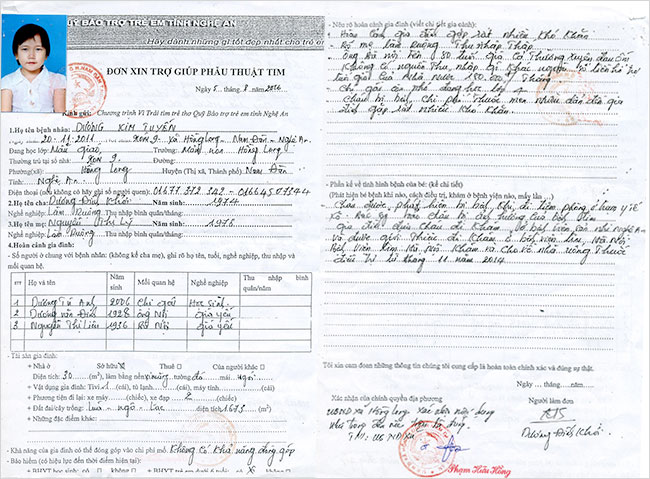 QUỸ BẢO TRỢ TRẺ EM TỈNH NGHỆ AN
Hãy dành những gì tốt đẹp nhất cho trẻ em
ĐƠN XIN TRỢ GIÚP PHẪU THUẬT TIM
Ngày 5 tháng 8 2014
Kính gửi: Chương trình Vì Trái tim trẻ thơ Quỹ Bảo trợ trẻ em tỉnh Nghệ An
1.Họ tên bệnh nhân: DƯƠNG KIM TUYẾN
20-11-2011 xóm 9 - xã Hồng Long - Nam Đàn - Nghệ An.
Đang học lớp: Mẫu giáo Trường: Mầm non Hồng Long
Thường trú tại số nhà: xóm 9 Đường:
Phường(xã): Hồng Long Huyện (Thị xã, Thành phố) Nam Đàn
Tỉnh: Nghệ An.
Điện thoại (nếu không có hãy ghi số người quen): 01677 372 342 -
2.Họ tên cha: Dương Đức Khải Năm sinh: 1974
Nghề nghiệp: Làm Ruộng Thu nhập bình quân/tháng:
3.Họ tên mẹ: Nguyễn Thị Lý Năm sinh: 1976
Nghề nghiệp: Làm Ruộng Thu nhập bình quân/tháng:
4.Hoàn cảnh gia đình:
- Số người ở chung với bệnh nhân: (không kể cha, mẹ), ghi rõ họ tên, tuổi, nghề nghiệp, thu nhập và
mối quan hệ.
STT Họ và tên Năm sinh Mối quan hệ Nghề nghiệp Thu nhập bình quân/năm
1 Dương Tú Anh 2006 Chị gái Học sinh.
2 Dương Văn 1928 ông Nội già yếu
3 Nguyễn Thị Liên 1936 Bà Nội già yếu
- Tài sản gia đình:
+ Nhà ở Sở hữu Thuê Của người khác
Diện tích: 30 (m²), làm bằng nền xi măng, tường đá mái ngói
+ Vật dụng gia đình: Tivi 1 (cái), tủ lạnh (cái), máy tính (cái)
+ Phương tiện đi lại: xe máy (chiếc), xe đạp 2 (chiếc)
+ Đất đai/cây trồng: lúa - ngô - Lạc diện tích 1673 (m²)
+ Những đặc điểm khác:
- Khả năng của gia đình có thể đóng góp vào chi phí mổ: Không có khả năng đóng góp
- Bảo hiểm (có hiệu lực đến thời điểm hiện tại):
+ BHYT học sinh: có không + BHYT trẻ em dưới 6 tuổi: có X không
- Nêu rõ hoàn cảnh gia đình (viết chi tiết gia cảnh):
- Hiện tại gia đình gặp rất nhiều khó khăn
- Bố mẹ làm Ruộng Thu nhập Thấp
- Ông bà nội trên 80 tuổi già cả Thường xuyên đau ốm
Không có nguồn Thu nhập gì khác ngoài số tiền hỗ trợ
người già của Nhà nước 180.000đ/Tháng
- Chị gái còn nhỏ đang học lớp
- Cháu bị bệnh, chi phí Thuốc men nhiều dẫn đến gia
đình gặp rất nhiều khó khăn.
- Phần kể về tình hình bệnh của bé: (kể chi tiết)
(Phát hiện bé bệnh khi nào, cách điều trị, khám ở bệnh viện nào, mấy lần...)
Cháu được phát hiện bị bệnh khi đi tiêm phòng ở trạm y tế
xã.
Gia đình đưa cháu đi khám ở bệnh viện sản nhi Nghệ An
và được giới thiệu đi khám ở bệnh viện
và cho về nhà uống thuốc
điều trị từ tháng 11 năm 2014
Tôi xin cam đoan những thông tin chúng tôi cung cấp là hoàn toàn chính xác và đúng sự thật.
Ngày ... tháng... năm
Xác nhận của chính quyền địa phương
Người làm đơn
UBND xã Hồng Long xác nhận nội dung
TM: UBND xã
Dương Đức Khải
Phạm Hữu Hồng